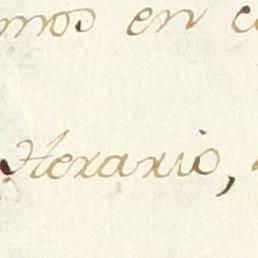 mos en c
Herario,